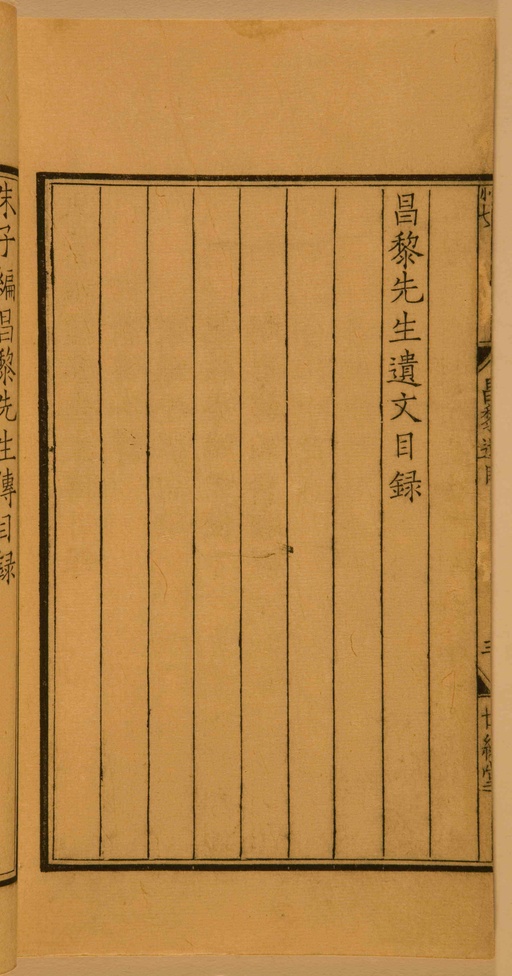 昌黎先生遺文目録
昌黎遺目
三
朱子編昌黎先生傳目録